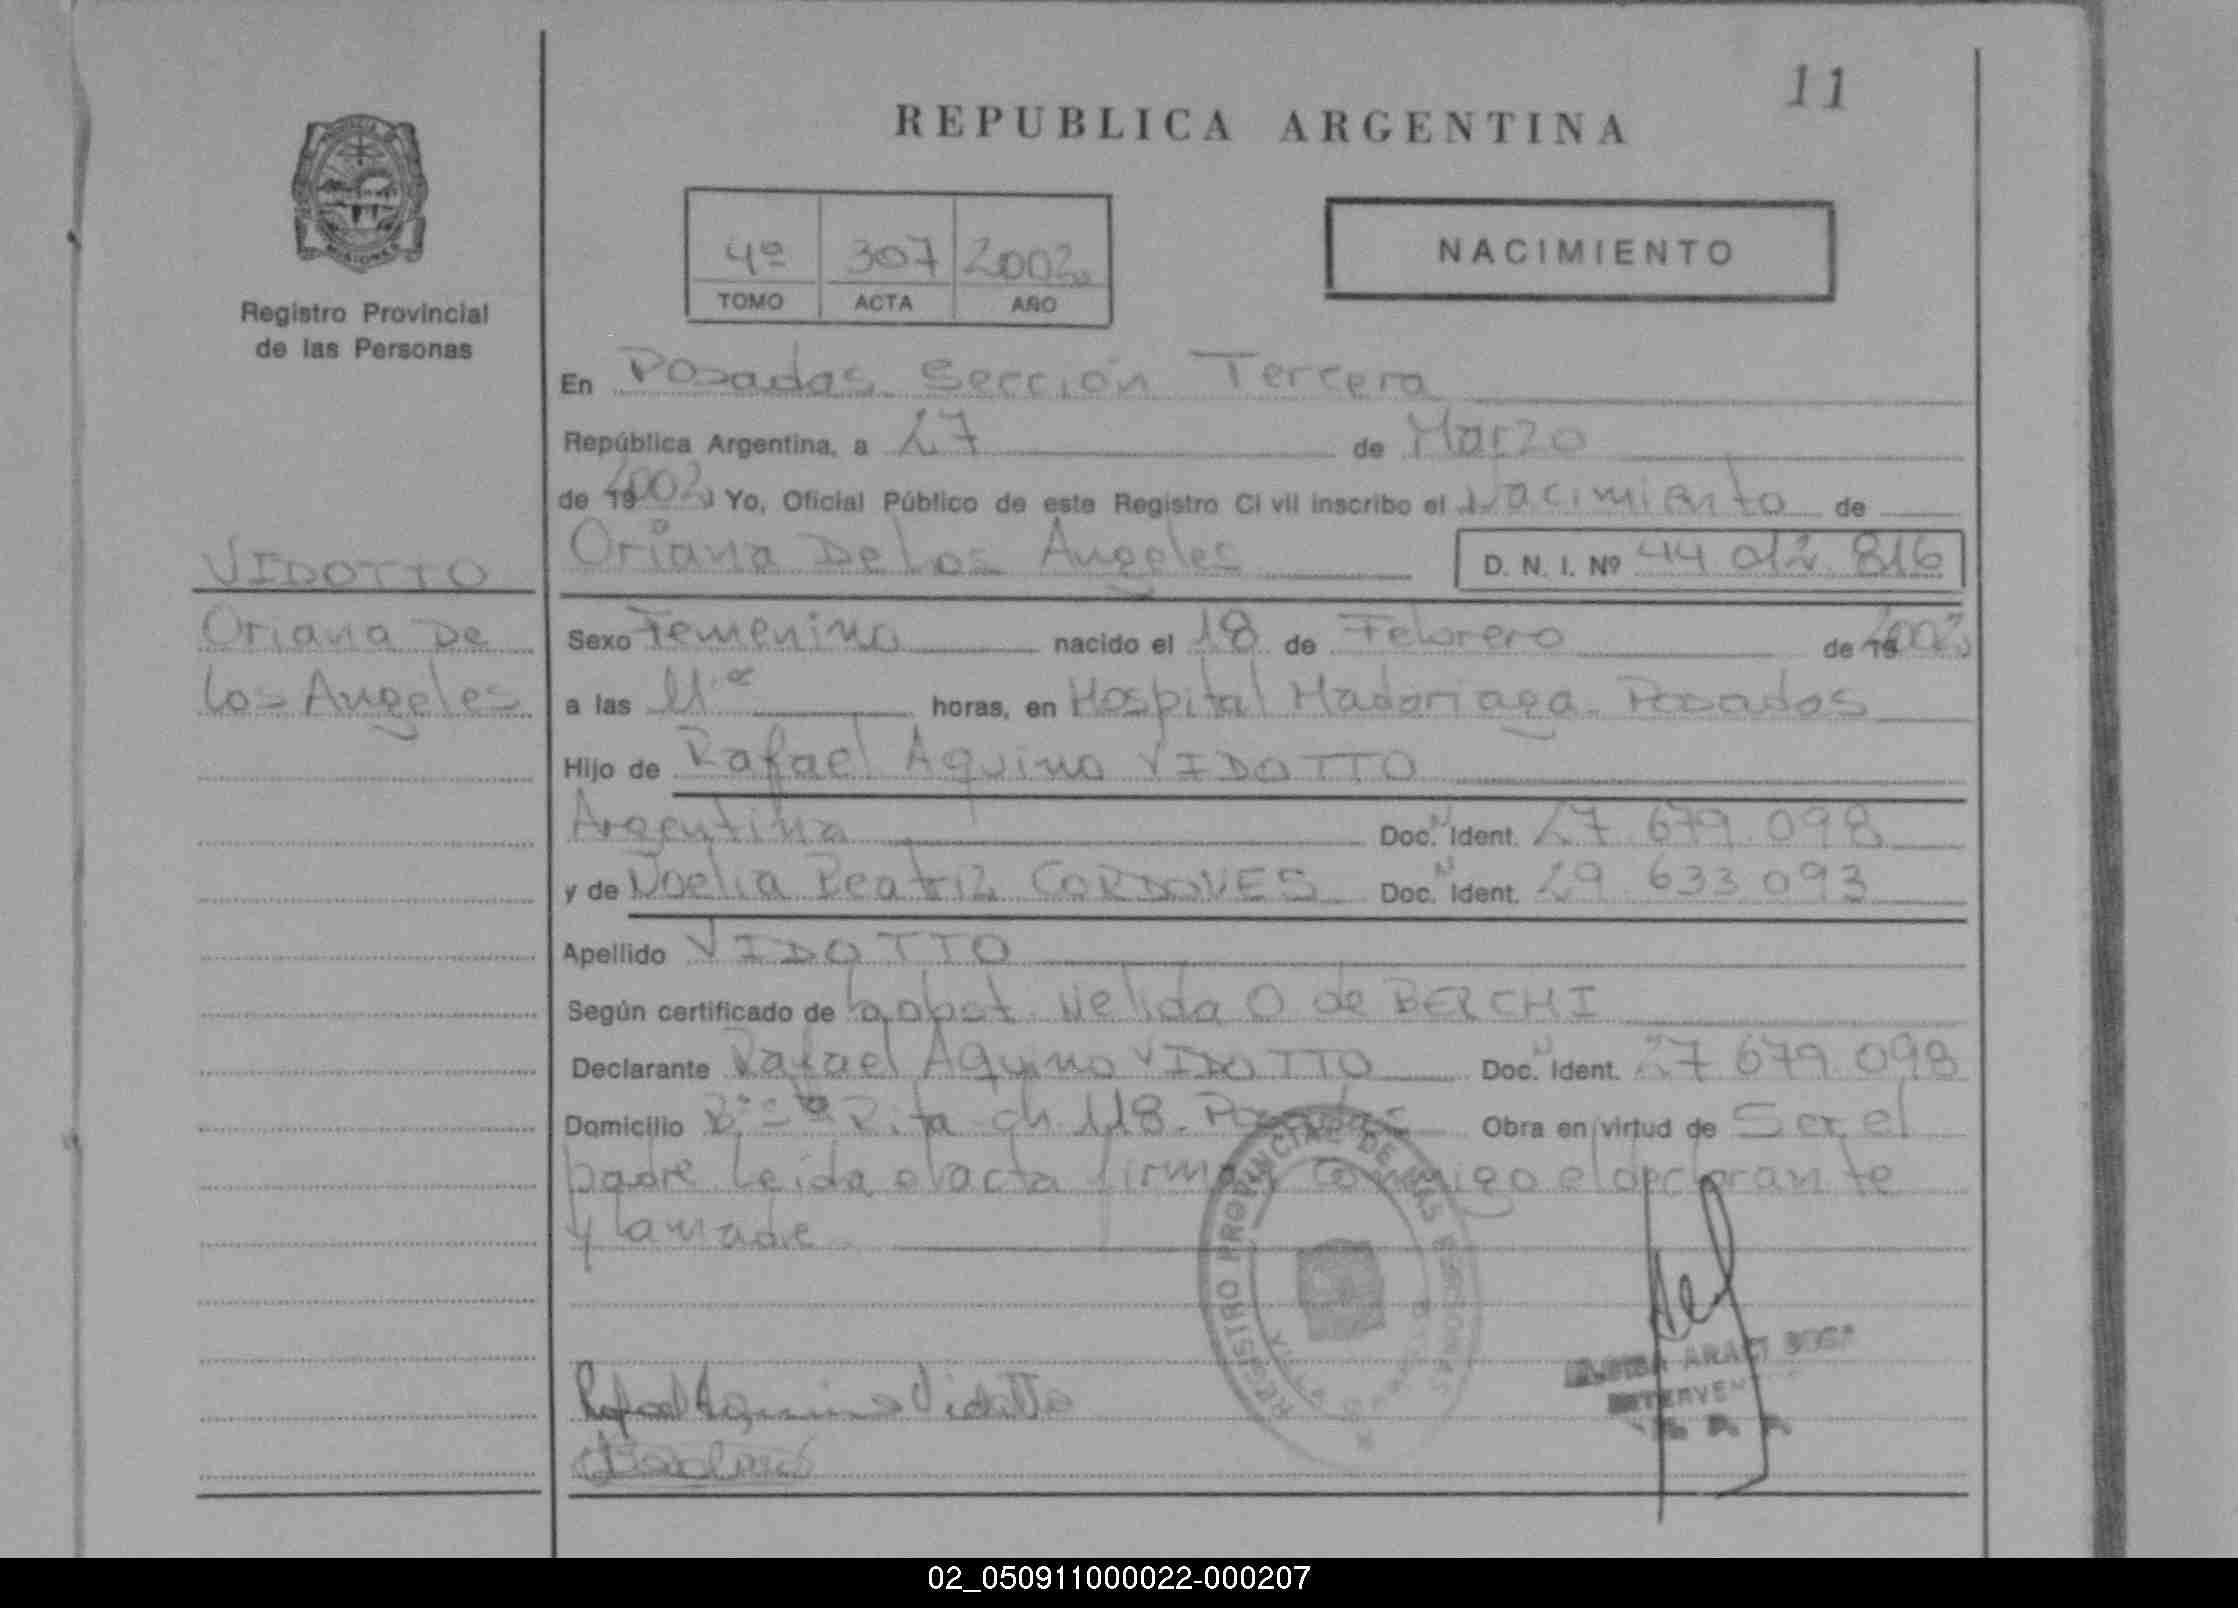 11
REPUBLICA ARGENTINA
4º 307 2002
TOMO ACTA AÑO
NACIMIENTO
Registro Provincial
de las Personas
En Posadas Sección Tercera
República Argentina, a 27 de Marzo
de 19 2002 Yo, Oficial Público de este Registro Civil inscribo el Nacimiento de
Oriana De Los Angeles D. N. I. Nº 44 012 816
VIDOTTO
Oriana De
Los Angeles
Sexo Femenino nacido el 18 de Febrero de 19 2002
a las horas, en Hospital Madariaga. Posadas
Hijo de Rafael Aquino VIDOTTO
Argentina Doc. N Ident. 27 679.098
y de Noelia Beatriz CORDOVES Doc. N Ident. 29 633 093
Apellido VIDOTTO
Según certificado de obst. Nelida O de BERCHI
Declarante Rafael Aquino VIDOTTO Doc. N Ident. 27 679 098
Domicilio Bº Sta Rita ch 118. Posadas Obra en virtud de Ser el
padre Leida el acta firman conmigo el declarante
y la madre
REGISTRO PROVINCIAL DE LAS PERSONAS
Rafael Aquino Vidotto
02_050911000022-000207